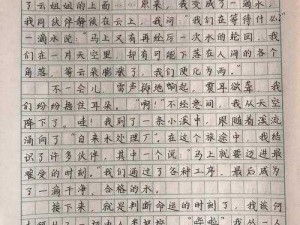 了云姐姐的上面……原来，我变成了水滴，
我同伙伴静读在云上，我问："我们在等待什么
一滴水说："马上又有再经历一次水的轮回，我
们在一片天空里，却有可能下落在人间的各个
角落，等云朵膨胀了，我们便化为雨。"
不一会儿，雷声抑地响起，震耳欲聋，我
们纷纷捂住耳朵。"啊！"不经意间，我从天空
降下了。哇！我到了一条小溪中，跟随着溪流
涌向了"自来水处理厂"。在这个旅途中，我结
识了许多伙伴，其中一个说："马上就要迈进最
艰全的时刻。"我们通过了各种工序，最后成为
了一滴干净、合格的水。
接下来，就是判断命运的时刻了，我该何